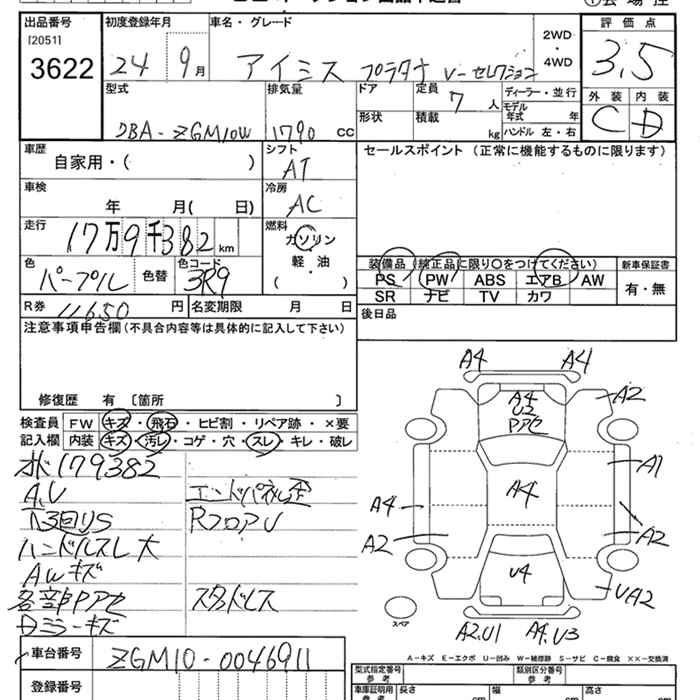 出品番号 初度登録年月 車名・グレード 2WD・4WD 評価点
[2051]
3622
24年 9月 アイシス プラタナ V-セレクション 3.5
型式 排気量 ドア 定員 7人 ディーラー・並行 外装 内装
形状 積載 kg モデル年式 年 ハンドル 左・右
DBA-ZGM10W 1790 CC C D
車歴 シフト セールスポイント (正常に機能するものに限ります)
自家用・( ) AT
車検 冷房
年 月( 日) AC
走行 燃料
17万9千382km ガソリン
軽・油
( )
装備品 (純正品に限り〇をつけてください) 新車保証書
PS PW ABS エアB AW 有・無
SR ナビ TV カワ
色 パープル 色替 色コード 3R9
R券 11650円 名変期限 月 日
後日品
注意事項申告欄(不具合内容等は具体的に記入して下さい)
修復歴 有 〔箇所 〕
検査員 FW キズ・飛石・ヒビ割・リペア跡・×要
記入欄 内装 キズ・汚レ・コゲ・穴・スレ・キレ・破レ
179382
A.U エンドパネル歪
RフロアU
ハンドルスレ大
AWキズ
各部PPセ スタッドレス
ミラーキズ
車台番号 ZGM10-0046911
登録番号
A4 A4
A4 A2
U2
PPセ
A1
A4 A4
A2 A2
U4
UA2
スペア
A2.U1 A4.U3
A-キズ E-エクボ U-凹み W-補修跡 S-サビ C-腐食 ××-交換済
型式指定番号 参考 類別区分番号 参考
車庫証明用 参考 長さ cm 幅 cm 高さ cm